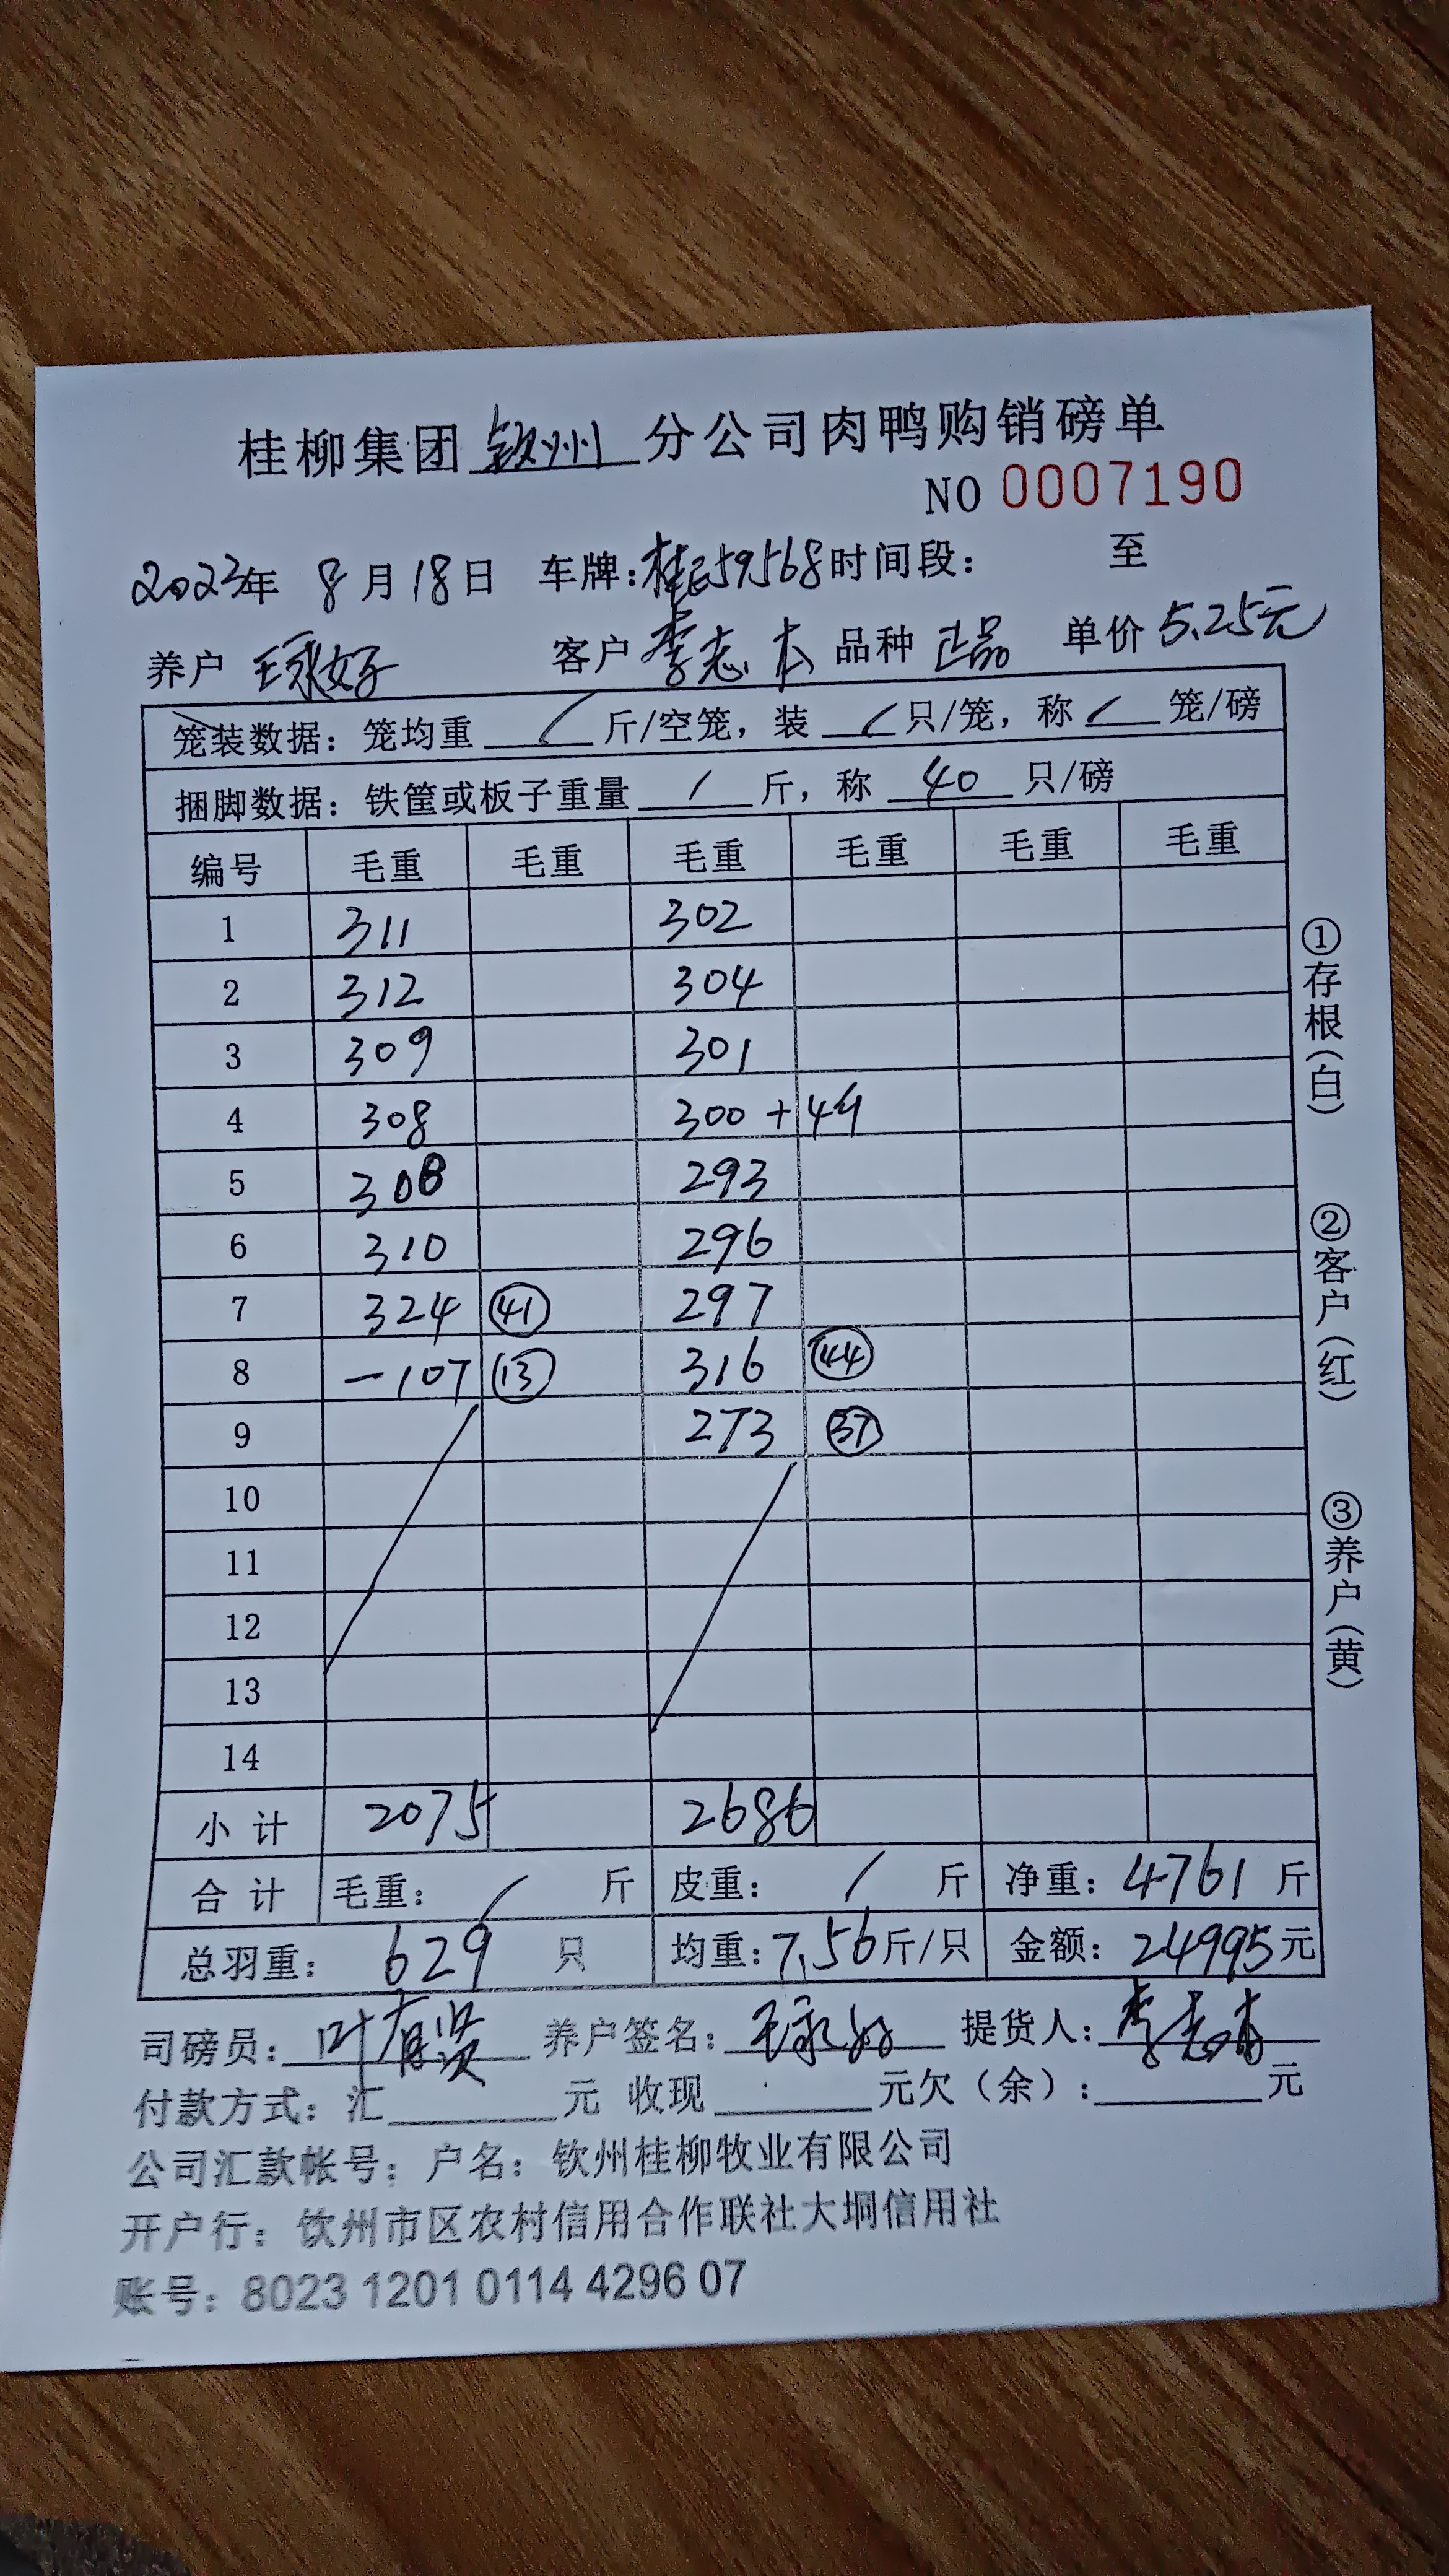 桂柳集团 钦州 分公司肉鸭购销磅单
NO 0007190
2023年 8月18日 车牌:桂E59568 时间段: 至
养户 王永好 客户 李志本 品种 正品 单价 5.25元
笼装数据: 笼均重 / 斤/空笼, 装 / 只/笼, 称 / 笼/磅
捆脚数据: 铁筐或板子重量 / 斤, 称 40 只/磅
编号 毛重 毛重 毛重 毛重 毛重 毛重
1 311 302
2 312 304
3 309 301
4 308 300 +44
5 308 293
6 310 296
7 324 ㊶ 297
8 -107 ⑬ 316 ㊹
9 273 ㊲
10
11
12
13
14
小计 2075 2686
合计 毛重: / 斤 皮重: / 斤 净重: 4761 斤
总羽重: 629 只 均重: 7.56斤/只 金额: 24995元
司磅员: 叶有贤 养户签名: 王永好 提货人: 李志
付款方式: 汇 元 收现 元欠(余): 元
公司汇款帐号: 户名: 钦州桂柳牧业有限公司
开户行: 钦州市区农村信用合作联社大垌信用社
账号: 8023 1201 0114 4296 07
①存根(白)
②客户(红)
③养户(黄)